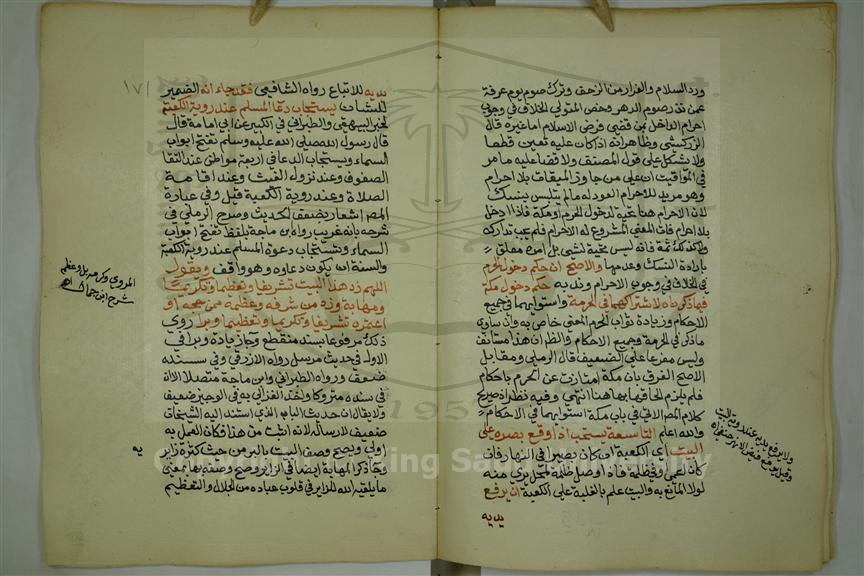 ورد السلام والفرار من الزحف وترك صوم يوم عرفة
عمن نذر صوم الدهر وخص المتولي الخلاف في وجوب
احرام الداخل بمن قضى فرض الاسلام اما غيره قال
الزركشي وظاهر انه اذا كان عليه تعين قطعا
ولا يشكل على قول المصنف ولا قضا عليه ما مر
في المواقيت ان على من جاوز الميقات بلا احرام
وهو مريد للاحرام العود له ما لم يتلبس بنسك
لان الاحرام هنا تحية لدخول الحرم او مكة فاذا دخل
بلا احرام فات المعنى المشروع له الاحرام فلم يجب تداركه
ولا كذلك ثمة فانه ليس تحية لشي بل امره معلق
بارادة النسك وعدمها والاصح ان حكم دخول الحرم
في الخلاف في وجوب الاحرام وندبه حكم دخول مكة
فيما ذكرناه لاشتراكهما في الحرمة واستوايهما في جميع
الاحكام وزيادة ثواب الحرم المعني خاص به وان ساوته
ماذكر في الحرمة وجميع الاحكام والظ ان هذا مستانف
وليس مفرعا على الضعيف قال الرملي ومقابل
الاصح الفرق بان مكة امتازت عن الحرم باحكام
فلم يلزم الحاقه بها هنا انتهى وفيه نظر اذ صريح
كلام المص الاتي في باب مكة استوايهما في الاحكام
والله اعلم التاسعة يستحب اذا وقع بصره على
البيت اي الكعبة ان كان بصيرا في النهار فان
كان اعمى وفي ظلمة فاذا وصل لمحل يرى منه
لولا المانع به والبيت علم بالغلبة على الكعبة ان يرفع
يديه
ولا يرفع يديه عند روية البيت
يديه للاتباع رواه الشافعي فقد جاء انه الضمير
للشان يستجاب دعا المسلم عند روية الكعبة
لخبر البيهقي والطبراني في الكبير عن ابي امامة قال
قال رسول الله صلى الله عليه وسلم تفتح ابواب
السماء ويستجاب الدعا في اربعة مواطن عند التقا
الصفوف وعند نزول الغيث وعند اقامة
الصلاة وعند روية الكعبة قيل وفي عبارة
المص اشعار بضعف الحديث وصرح الرملي في
شرحه بانه غريب رواه بن ماجة بلفظ تفتح ابواب
السماء وتستجاب دعوة المسلم عند روية الكعبة
والسنة ان يكون دعاوه وهو واقف ويقول
اللهم زد هذا البيت تشريفا وتعظيما وتكريما
ومهابة وزد من شرفه وعظمه ممن حجه او
اعتمره تشريفا وتكريما وتعظيما وبرا روي
ذلك مرفوعا بسند منقطع وجا زيادة وبرا في
الاول في حديث مرسل رواه الازرقي وفي سنده
ضعف ورواه الطبراني وابن ماجة متصلا الا ان
في سنده متروكا واخذ الغزالي به في الوجيز ضعيف
ولا يقال ان حديث الباب الذي استند اليه الشيخان
ضعيف لارساله لانه اثبت من هذا فكان العمل به
اولى ويصح وصف البيت بالبر من حيث كثرة زاير
وجا ذكر المهابة ايضا في الزاير وصح وصفه بها بمعنى
ما يلقيه الله للزاير في قلوب عباده من الجلال والتعظيم
المروي وكرمه بدل وعظمه
شرح ابن جمال اه
King Saud University
195